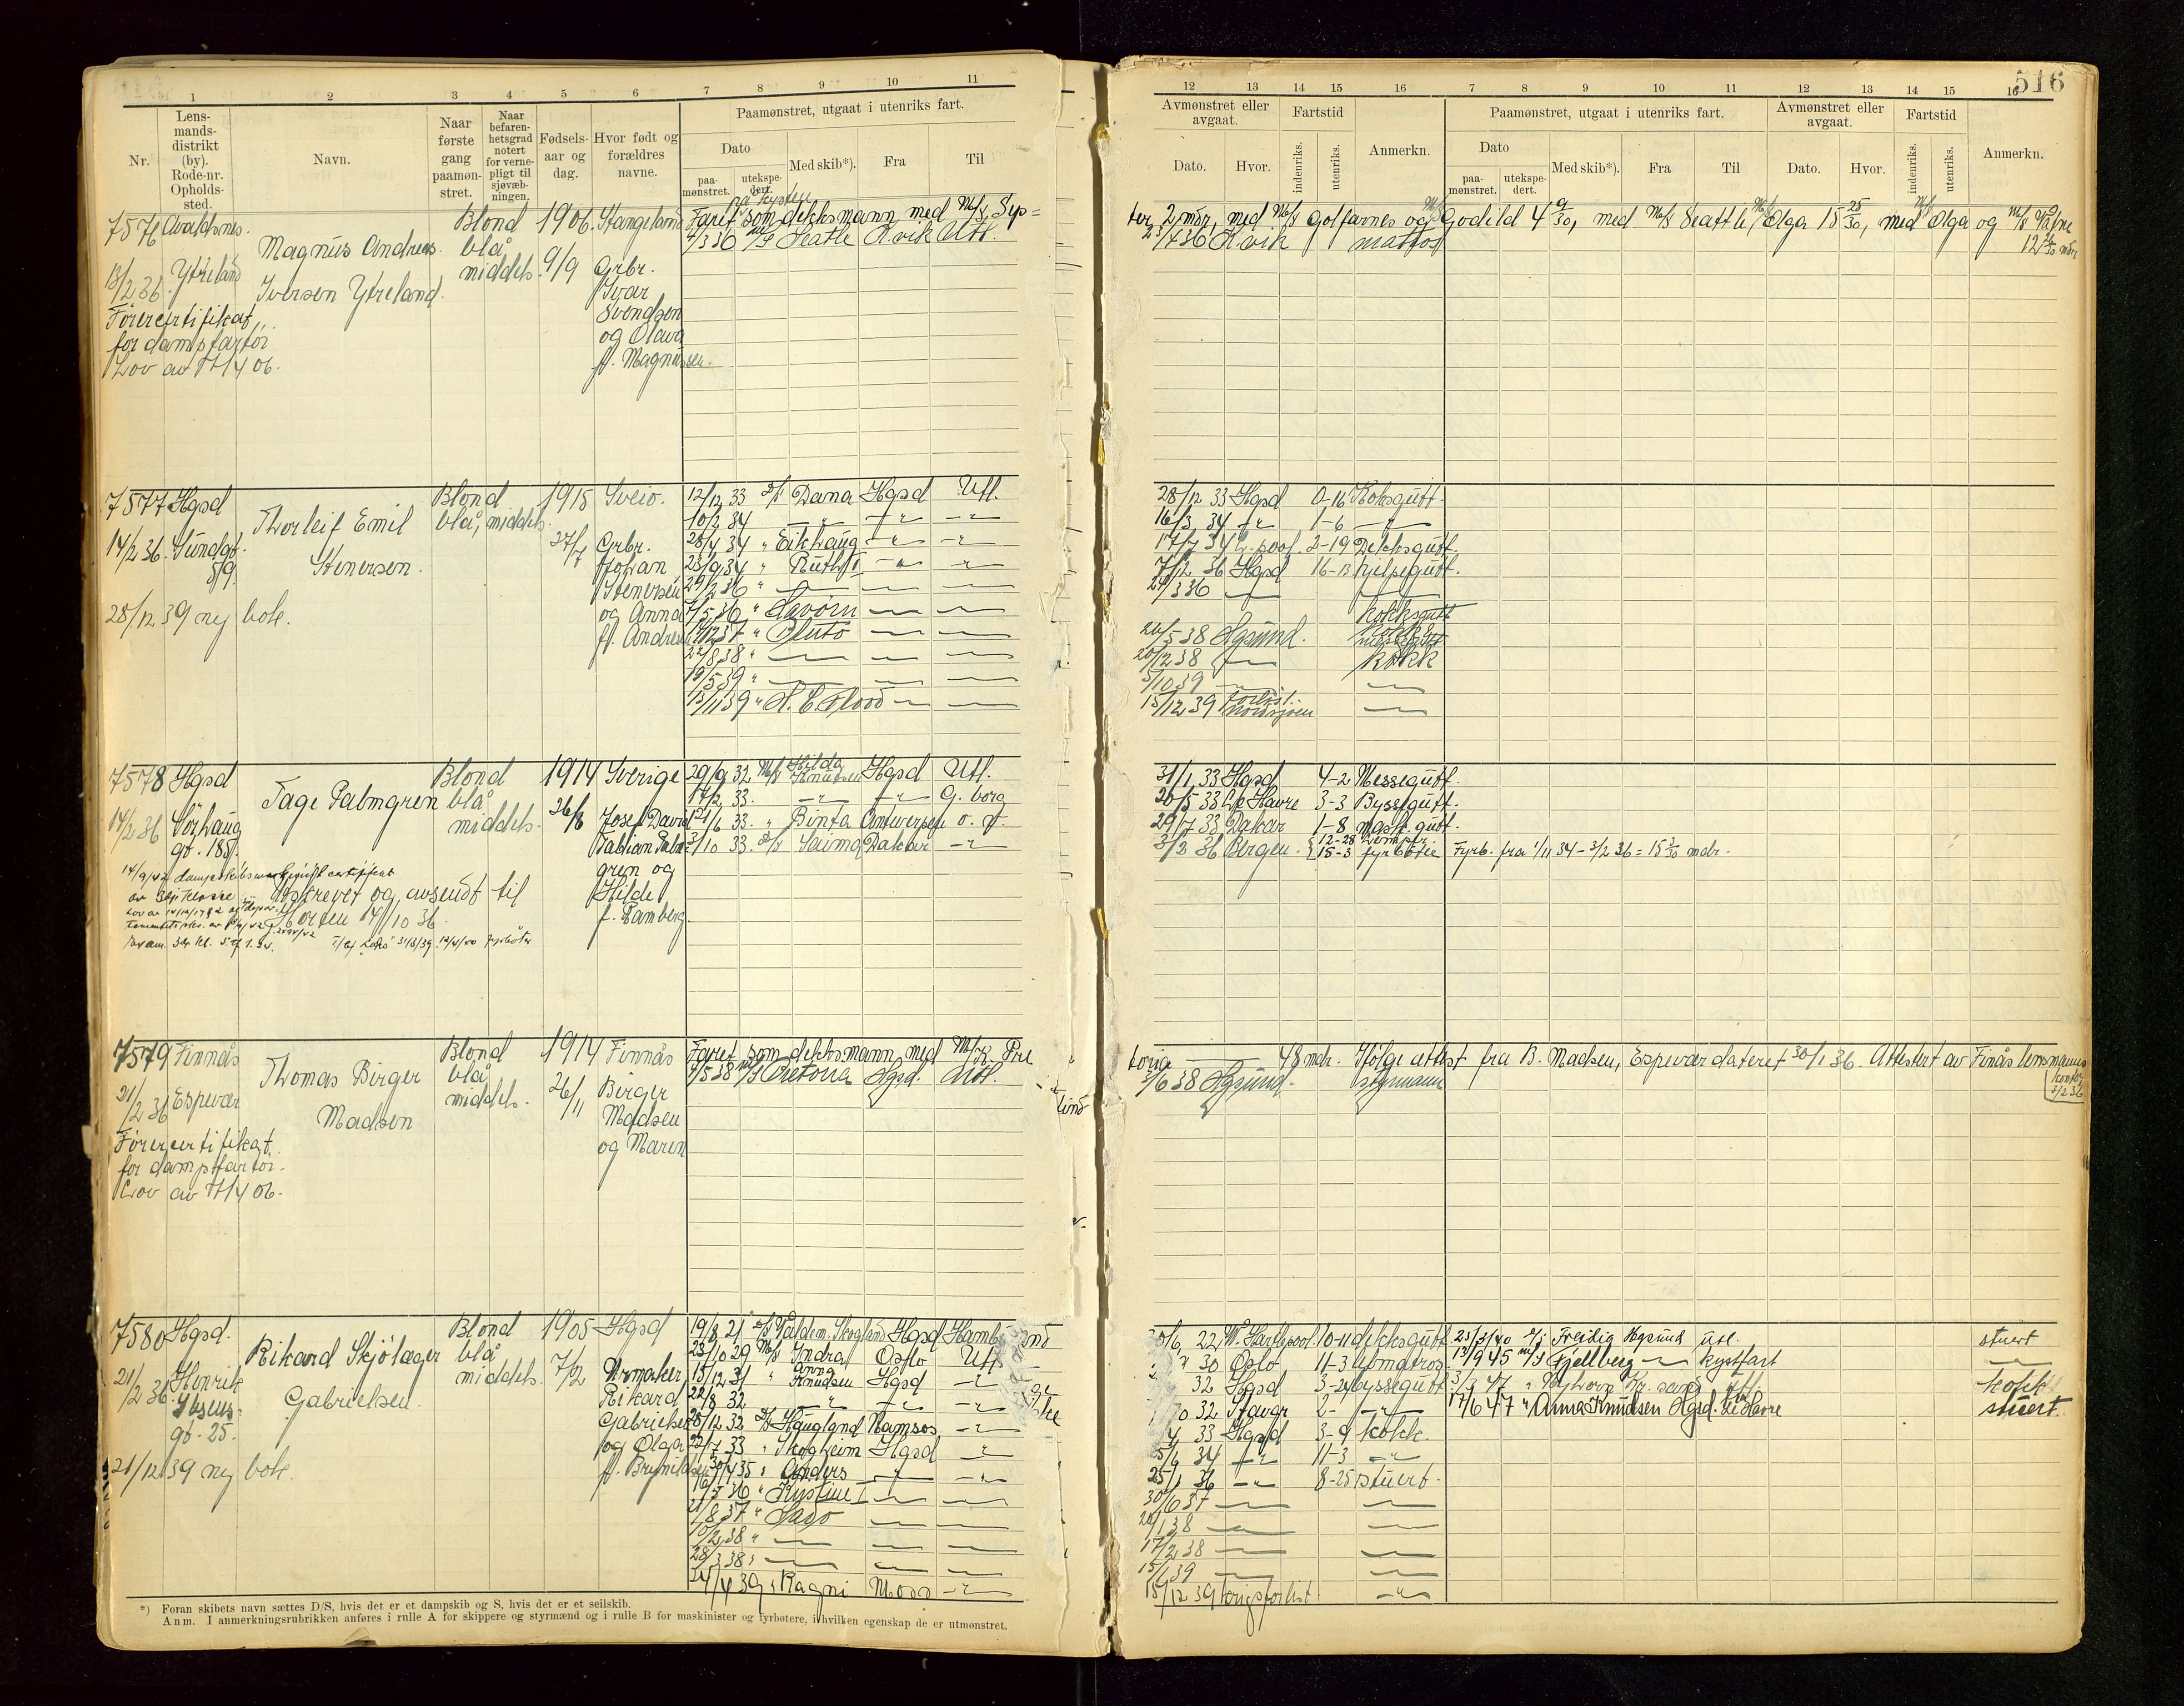 516
1 2 3 4 5 6 7 8 9 10 11
Nr.
Lens-
mands-
distrikt
(by).
Rode-nr.
Opholds-
sted.
Navn.
Naar
første
gang
paamøn-
stret.
Naar
befaren-
hetsgrad
notert
for verne-
pligt til
sjøvæb-
ningen.
Fødsels-
aar og
dag.
Hvor født og
forældres
navne.
Paamønstret, utgaat i utenriks fart.
Dato
paa-
mønstret.
utekspe-
dert.
Med skib*).
Fra
Til
12 13 14 15 16 7 8 9 10 11 12 13 14 15 16
Avmønstret eller
avgaat.
Dato.
Hvor.
Fartstid
indenriks.
utenriks.
Anmerkn.
Paamønstret, utgaat i utenriks fart.
Dato
paa-
mønstret.
utekspe-
dert.
Med skib*).
Fra
Til
Avmønstret eller
avgaat.
Dato.
Hvor.
Fartstid
indenriks.
utenriks.
Anmerkn.
7576 Avaldsnes.
13/2 36 Ytreland
Førercertifikat
for dampfartøi
Lov av 17/4 06.
Magnus Andreas
Iversen Ytreland.
Blond
blå
middels.
1906.
9/9
Stangeland
Grbr.
Ivar
Svendsen
og Olava
f. Magnussen.
på kysten
Faret som dekksmann med M/s
Seatle Kvik Utl.
2 mdr, med M/s Golfarnes og M/s Godild 4 9/30, med M/s Seattle, M/s Olga 15 25/30, med M/s Olga og M/s
Kvik matros
7577 Hgsd
14/2 36. Sundgt.
89
28/12 39 ny bok.
Thorleif Emil
Stenersen.
Blond
blå, middels.
1915
27/7
Sveio.
Grbr.
Johan
Stenersen
og Anna
f. Andrea
12/12 33 D/s Dana Hgsd Utl.
10/2 34
28/4 34 " Eikhaug
23/9 34 " Ruth I
29/2 36 "
7/5 36 " Havørn
" Pluto
22/8 38 "
19/5 39 "
13/11 39 " H. C. Flood
28/12 33 Hgsd 0-16 Koksgutt.
16/3 34 1-6
17/7 34 L.pool. 2-19 Dekksgutt.
7/2 36 Hgsd 16-13 Hjelpegutt.
Kokksgutt
26/5 38 Hgsund.
20/12 38 Kokk
5/10 39
15/12 39 Forlist.
Nordsjøen
7578 Hgsd
14/2 36 Sørhaug
gt. 185.
Tage Palmgren
Blond
blå
middels.
1914
26/8
Sverige
Josef David
Fabian Palm=
gren og
Hilde
f. Pamberg
avskrevet og avsendt til
Horten 17/10 36.
29/9 32 M/s Hilda
Knudsen Hgsd Utl.
17/2 33. G. borg
21/6 33. " Binta Antwerpen o. f.
3/10 33. D/s Saima Dakar
31/1 33 Hgsd 4-2 Messegutt.
20/5 33 Le Havre 3-3 Byssegutt.
29/7 33 Dakar 1-8 mask. gutt.
3/2 36 Bergen. 12-28 Lemper
15-3 fyrbøter Fyrb. fra 1/11 34 – 3/2 36 = 15 3/30 mdr.
7579 Finnås
21/2 36 Espevær
Førercertifikat
for dampfartøi.
Lov av 17/4 06.
Thomas Birger
Madsen
Blond
blå
middels.
1914
26/11
Finnås
Birger
Madsen
og Maren
Faret som dekksmann med M/k. Pre
7/5 38 M/s Pretoria Hgsd. Utl.
toria 48 mdr. Ifølge attest fra B. Madsen, Espevær dateret 30/1 36. Attestert av Finås lensmanns
kontor
5/2 36
Hgsund. styrmann
7580 Hgsd.
21/2 36 Henrik
Ibsens-
gt. 25.
21/12 39 ny bok.
Rikard Skjölager
Gabrielsen
Blond
blå
middels.
1905
7/2
Hgsd
Urmaker
Rikard
Gabrielsen
og Olga
f. Brynildsen
19/8 21 D/s Valdem. Skogland Hgsd Hamb
23/10 29 M/s Indra Oslo Utl
15/12 31 " Anna
Knudsen Hgsd
22/8 32
28/12 32 D/s Haugland Namsos
22/7 33 " Skogheim Hgsd
30/4 35 " Anders
16/5 36 " Kystine I
21/8 37 " Saso
10/2 38 "
28/3 38 "
4 39 " Ragni Moss
22 W. Hartlepool. 10-11 dekksgutt.
30 Oslo 11-3 lettmatros
32 Hgsd 3-24 byssegutt
32 Stavgr 2-
33 Hgsd 3-9 kokk.
5/6 34 11-3
25/1 36 8-25 stuert.
30/6 37
20/1 38
17/2 38
15/1 39
15/12 39 krigsforlist
23/3 40 D/s Freidig Hgsund utl. stuert
13/9 45 M/s Fjellberg kystfart
3/3 47 " Kr. sand utl. kokk
17/6 47 " Anna Knudsen Hgsd. Le Havre stuert.
*) Foran skibets navn sættes D/S, hvis det er et dampskib og S, hvis det er et seilskib.
Anm. I anmerkningsrubrikken anføres i rulle A for skippere og styrmænd og i rulle B for maskinister og fyrbøtere, i hvilken egenskap de er utmønstret.